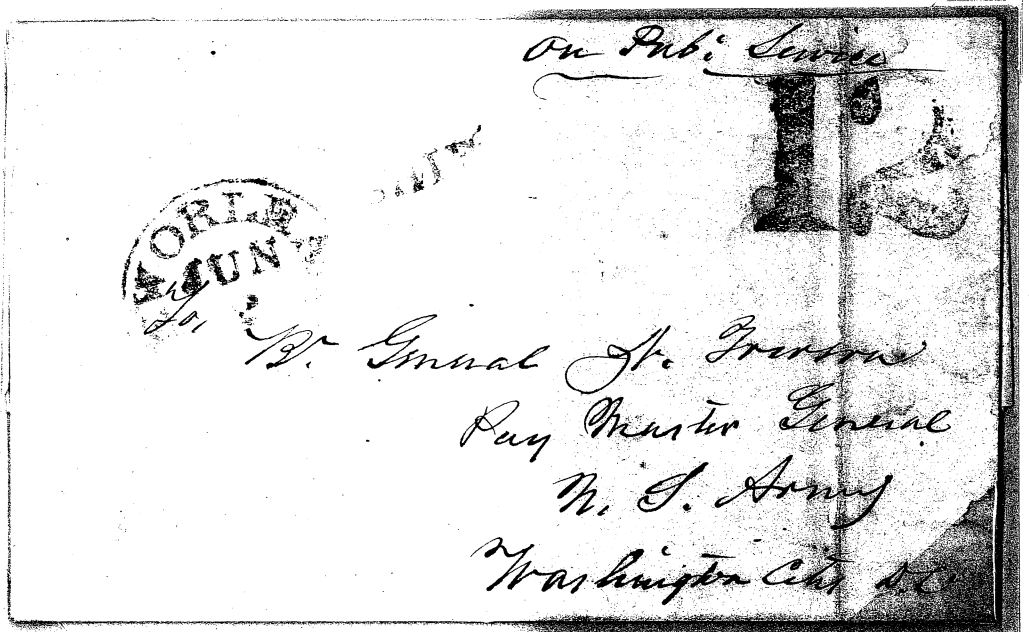 On Pub: Service
12
N ORLEA
JUN
To,
Br. General N. Towson
Pay Master General
U. S. Army
Washington City D.C.